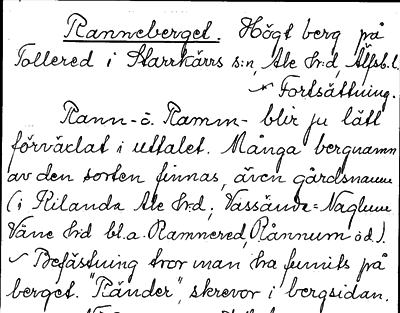 Ranneberget. Högt berg på
Tollered i Starrkärrs s:n, Ale H:d, Älfsb. l.
Fortsättning.
Rann- o. Ramm- blir ju lätt
förväxlat i uttalet. Många bergnamn
av den sorten finnas, även gårdsnamn
(i Kilanda Ale H:d; Vassända-Naglum
Väne H:d bl.a. Ramnered, Rånnum o.d.).
Befästning tror man ha funnits på
berget. "Ränder", skrevor i bergsidan.